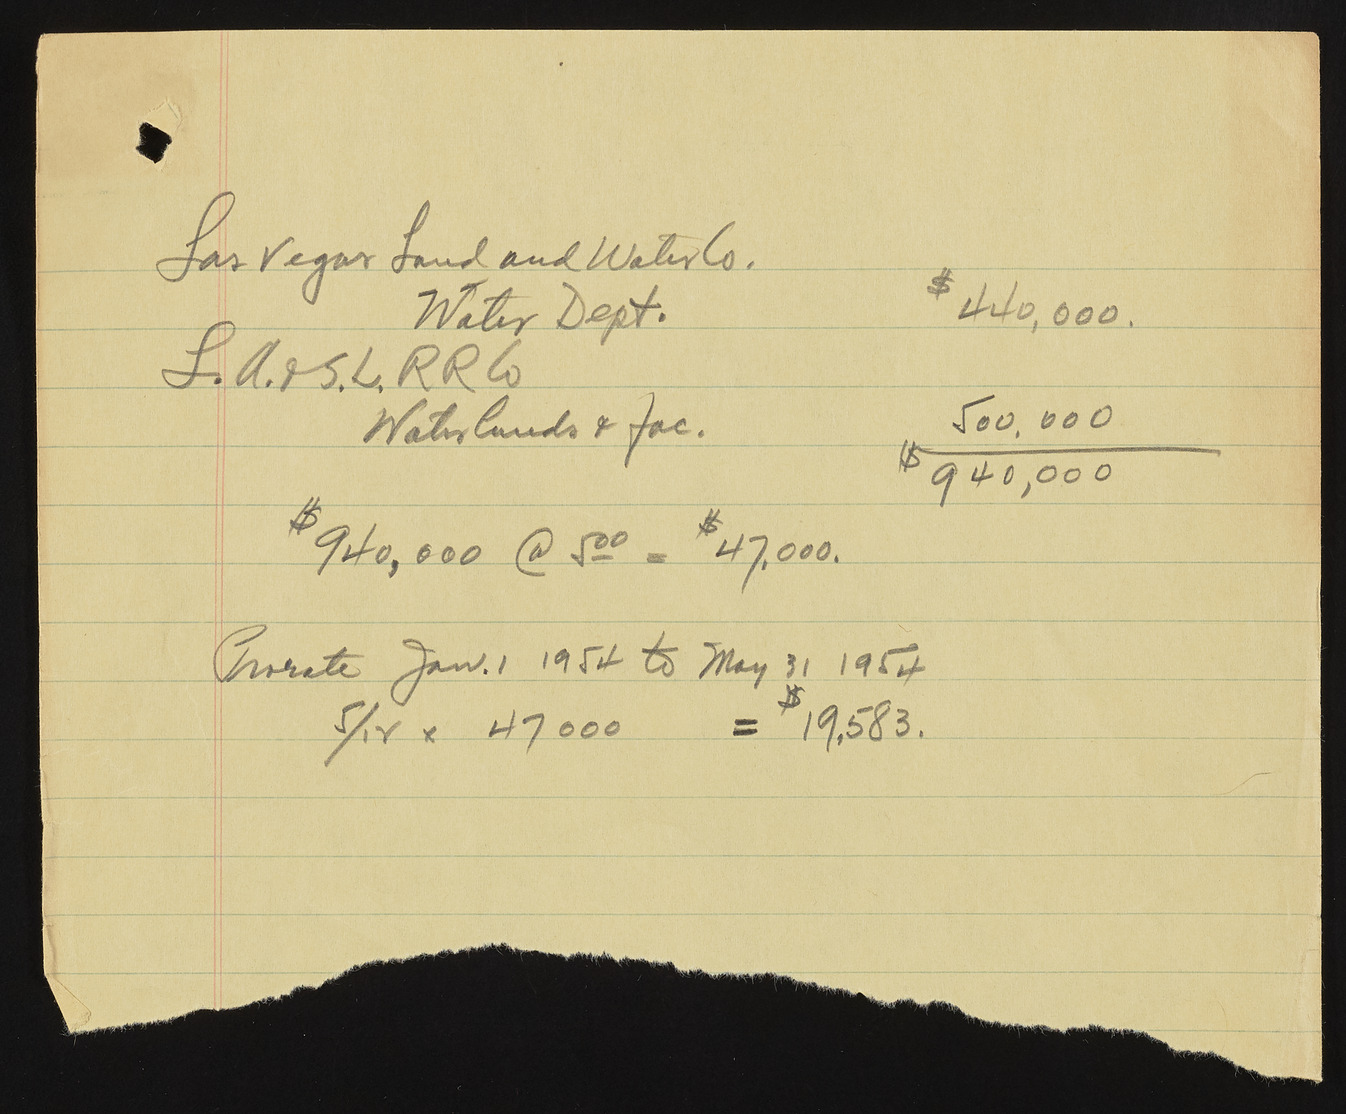 Las Vegas Land and Water Co.
Water Dept. $440,000.
L. A. & S. L. RR Co
Water lands & fac. 500,000
$940,000
$940,000 @ 500 = $47,000.
Prorate Jan. 1 1954 to May 31 1954
5/12 x 47000 = $19,583.